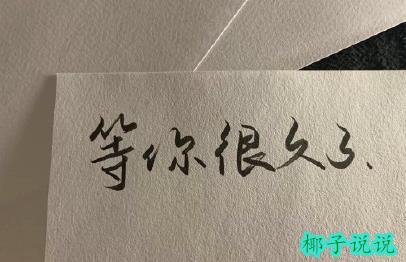 等你很久了、
椰子说说